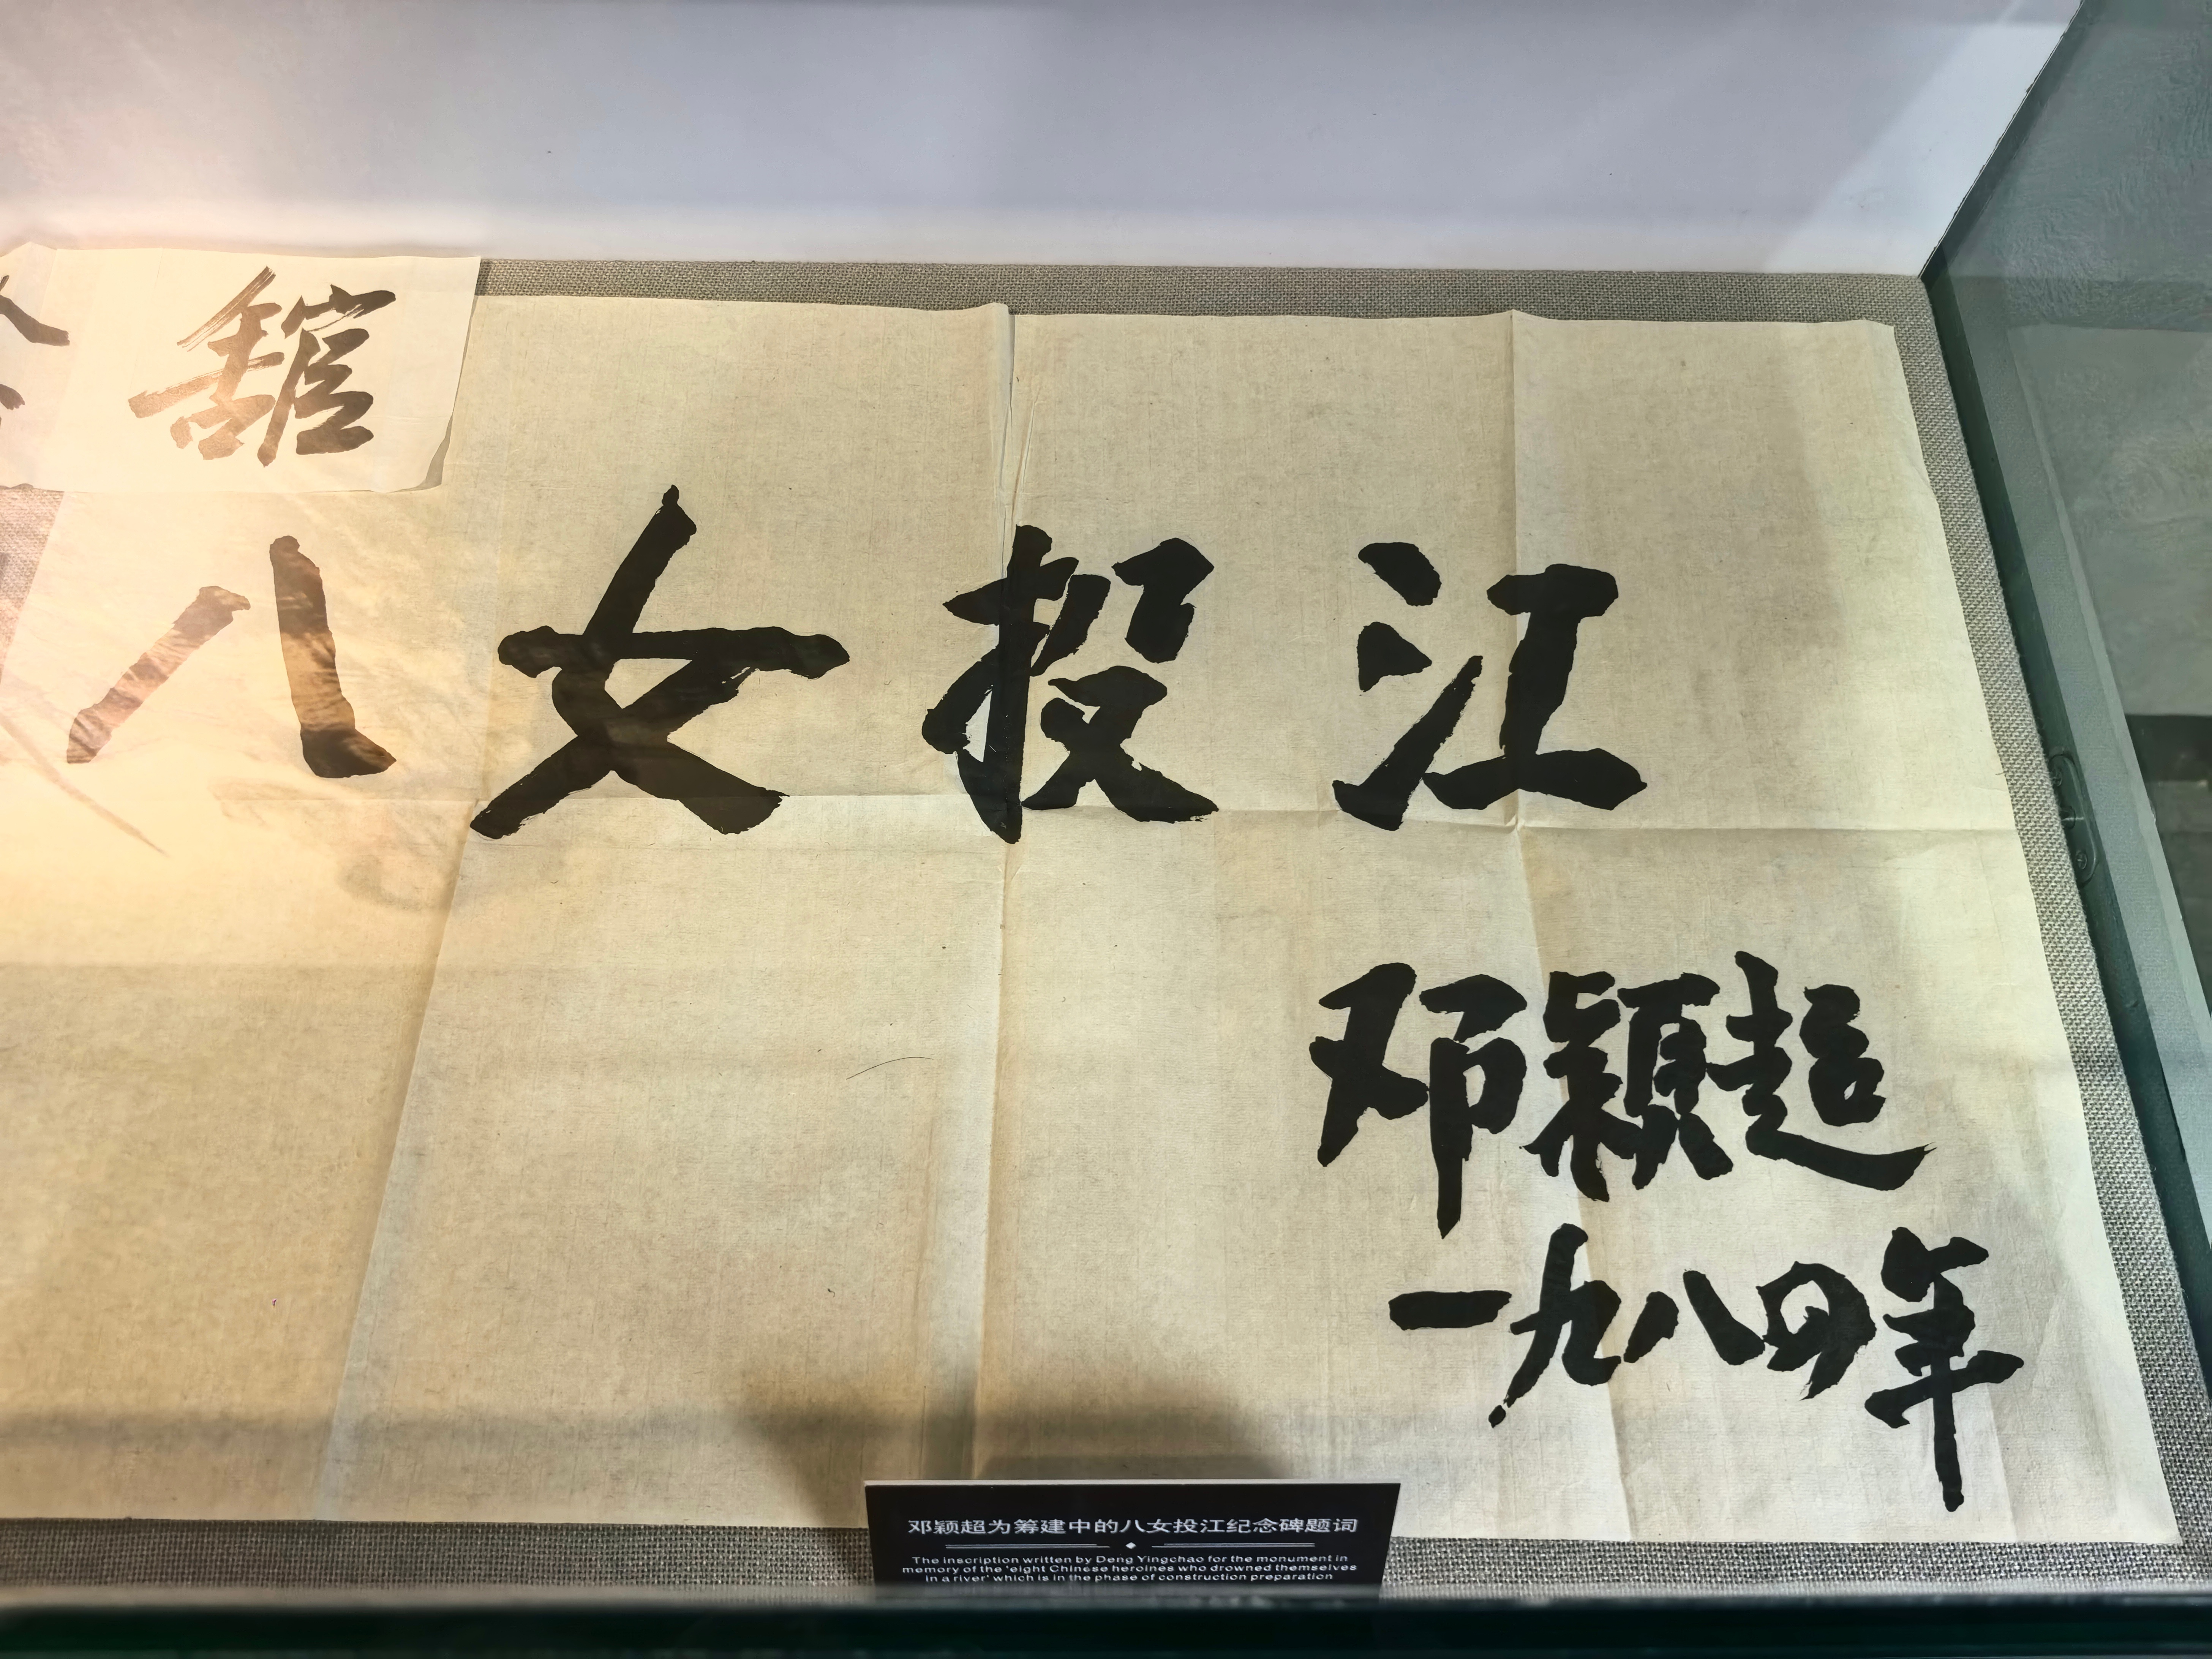 舘
八女投江
邓颖超
一九八四年
邓颖超为筹建中的八女投江纪念碑题词
The inscription written by Deng Yingchao for the monument in
memory of the 'eight Chinese heroines who drowned themselves
in a river' which is in the phase of construction preparation